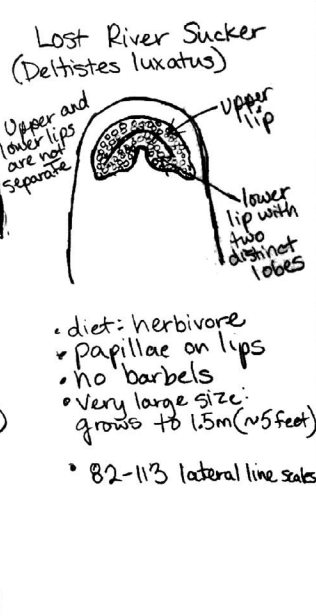 Lost River Sucker
(Deltistes luxatus)
Upper and
lower lips
are not
separate
upper
lip
lower
lip with
two
distinct
lobes
• diet: herbivore
• Papillae on lips
• no barbels
• very large size:
grows to 1.5m (~5 feet)
• 82-113 lateral line scales